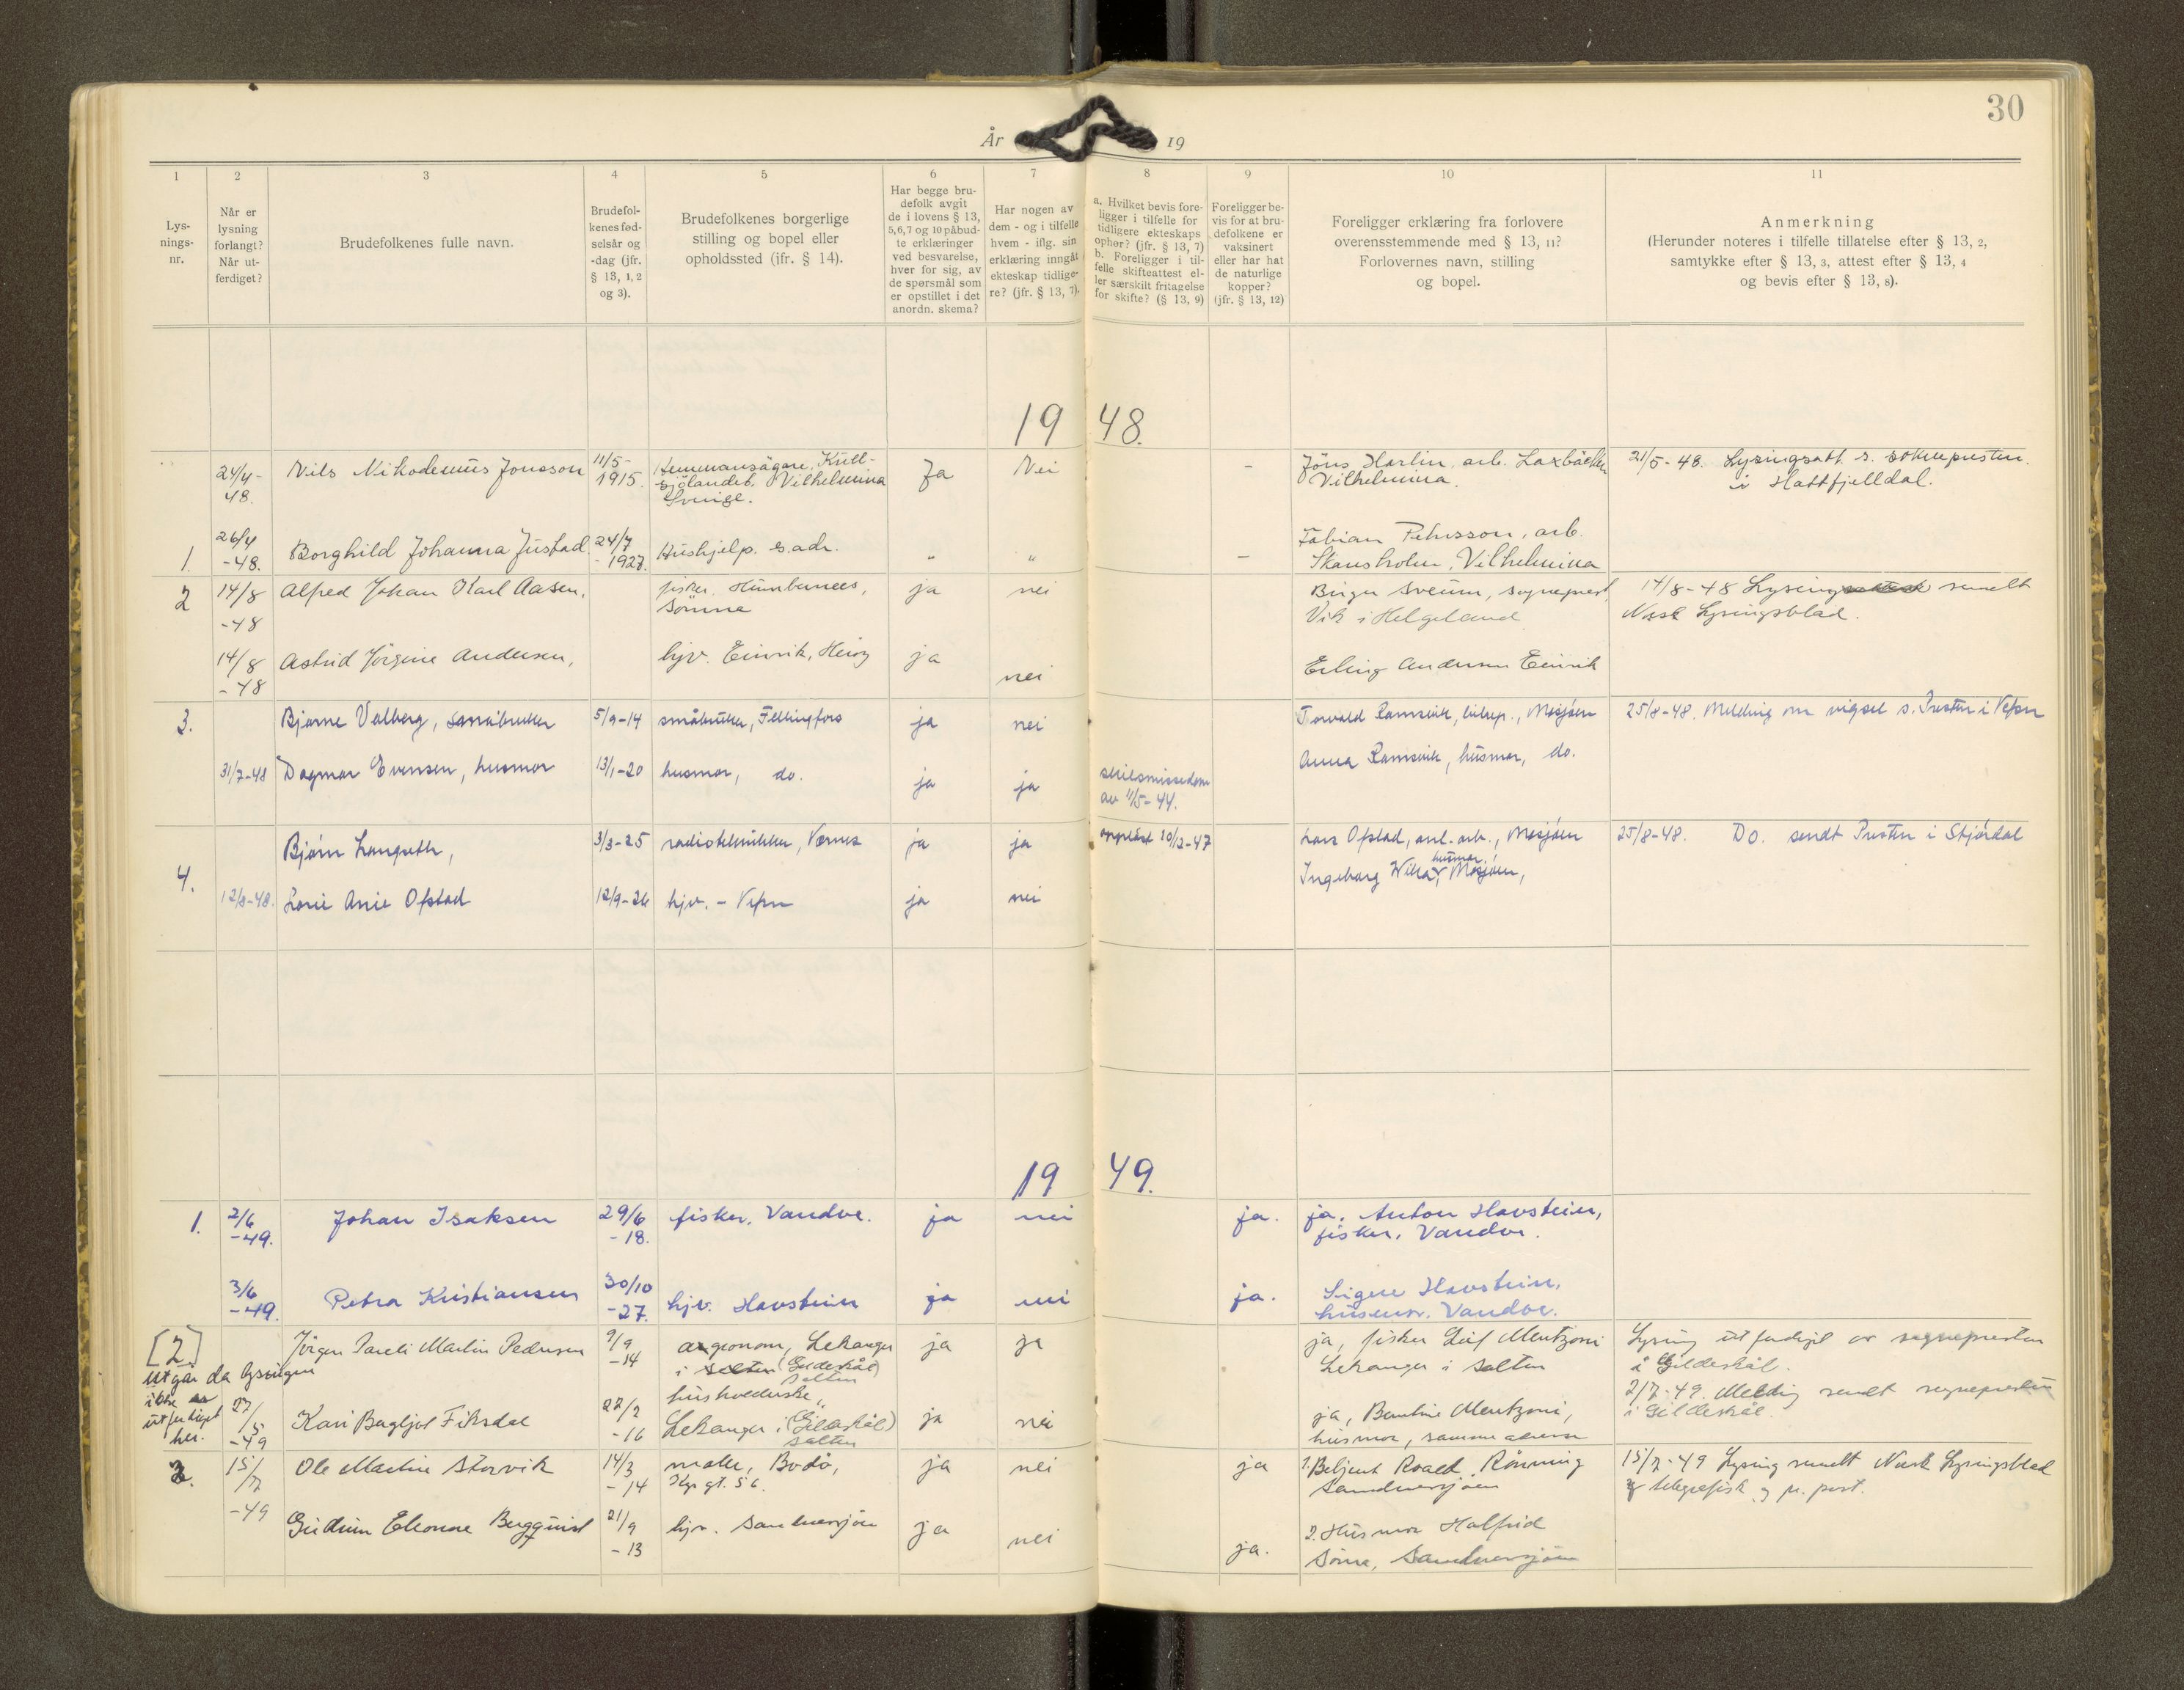 30
År 19
1 2 3 4 5 6 7 8 9 10 11
Lys-
nings-
nr.
Når er
lysning
forlangt?
Når ut-
ferdiget?
Brudefolkenes fulle navn.
Brudefol-
kenes fød-
selsår og
-dag (jfr.
§ 13, 1, 2
og 3).
Brudefolkenes borgerlige
stilling og bopel eller
opholdssted (ifr. § 14).
Har begge bru-
defolk avgit
de i lovens § 13,
5,6,7 og 10 påbud-
te erklæringer
ved besvarelse,
hver for sig, av
de spørsmål som
er opstillet i det
anordn. skema?
Har nogen av
dem - og i tilfelle
hvem - iflg. sin
erklæring inngåt
ekteskap tidlige-
re? (jfr. § 13, 7).
a. Hvilket bevis fore-
ligger i tilfelle for
tidligere ekteskaps
ophør? (jfr. § 13, 7)
b. Foreligger i til-
felle skifteattest el-
ler særskilt fritagelse
for skifte? (§ 13, 9)
Foreligger be-
vis for at bru-
defolkene er
vaksinert
eller har hat
de naturlige
kopper?
(jfr. § 13, 12)
Foreligger erklæring fra forlovere
overensstemmende med § 13, 11?
Forlovernes navn, stilling
og bopel.
Anmerkning
(Herunder noteres i tilfelle tillatelse efter § 13, 2,
samtykke efter § 13, 3, attest efter § 13, 4
og bevis efter § 13, 8).
19 48.
24/4-
48.
Nils Nikodemus Jonsson
11/5-
1915.
Hemmansägare, Kull-
sjölandet, Vilhelmina
Sverige.
Ja
Nei
-
Jöns Harlin, arb. Laxbäcken
Vilhelmina.
21/5-48. Lysingsatt. s. soknepresten
i Hattfjelldal.
1.
26/4
-48.
Borghild Johanna Justad
24/7
- 1927.
Hushjelp. s. adr.
"
"
-
Fabian Pehrsson, arb.
Skansholm, Vilhelmina
2
14/8
-48
Alfred Johan Karl Aasen,
fisker,
Sömna
ja
nei
Birger Sveum, sogneprest,
Vik i Helgeland
14/8-48 Lysing sendt
Norsk Lysingsblad.
14/8
-48
Astrid Jörgine Andersen,
hjv. Einvik, Herøy
ja
nei
Erling Andersen Einvik
3.
Bjarne Valberg, småbruker
5/9-14
småbruker, Fellingfors
ja
nei
Torvald Ramsvik, Mosjøen
25/8-48. Melding om vigsel s. Presten i Vefsn
31/7-48
Dagmar Evensen, husmor
13/1-20
husmor, do.
ja
ja
skilsmissedom
av 11/5-44.
Anna Ramsvik, husmor, do.
4.
Bjørn Langseth,
3/3-25
radiotekniker, Værnes
ja
ja
oppløst 10/12-47
Lars Ofstad, anl. arb., Mosjøen
25/8-48. Do. sendt Presten i Stjørdal
12/8-48.
Anie Ofstad
12/9-26
hjv. - Vefsn
ja
nei
husmor,
Ingeborg Mosjøen,
19 49.
1.
2/6
-49.
Johan Isaksen
29/6
-18.
fisker, Vandve.
ja
nei
ja.
ja, Anton Havstein,
fisker, Vandve.
3/6
-49.
Petra Kristiansen
30/10
-27.
hjv. Havstein
ja
nei
ja.
Signe Havstein,
husmor. Vandve.
[2]
utgår da lysingen
ikke er
utferdiget
her.
Jörgen Pareli Martin Pedersen
9/9
-14
agronom, Lekanger
i Salten (Gildeskål)
Salten
ja
ja
ja, fisker Leif Mentzoni
Lekanger i Salten
Lysing utferdiget av sognepresten
i Gildeskål.
2/7-49. Melding sendt sognepresten
i Gildeskål.
27/
/5
-49
Kari Bergljot Fiksdal
22/2
-16
husholderske,
Lekanger i (Gildeskål)
Salten
ja
nei
ja, Bentine Mentzoni,
husmor, samme adresse
2.
15/
/7
-49
Ole Martin Storvik
14/3
-14
maler, Bodø,
gt. 56.
ja
nei
ja
1. Betjent Roald Rönning
Sandnessjøen
15/7-49 Lysing sendt Norsk Lysingsblad
telegrafisk og pr. post.
Gudrun Eleonore Bergquist
21/9
-13
hjv. Sandnessjøen
ja
nei
ja.
2. Husmor Halfrid
Sandnessjøen